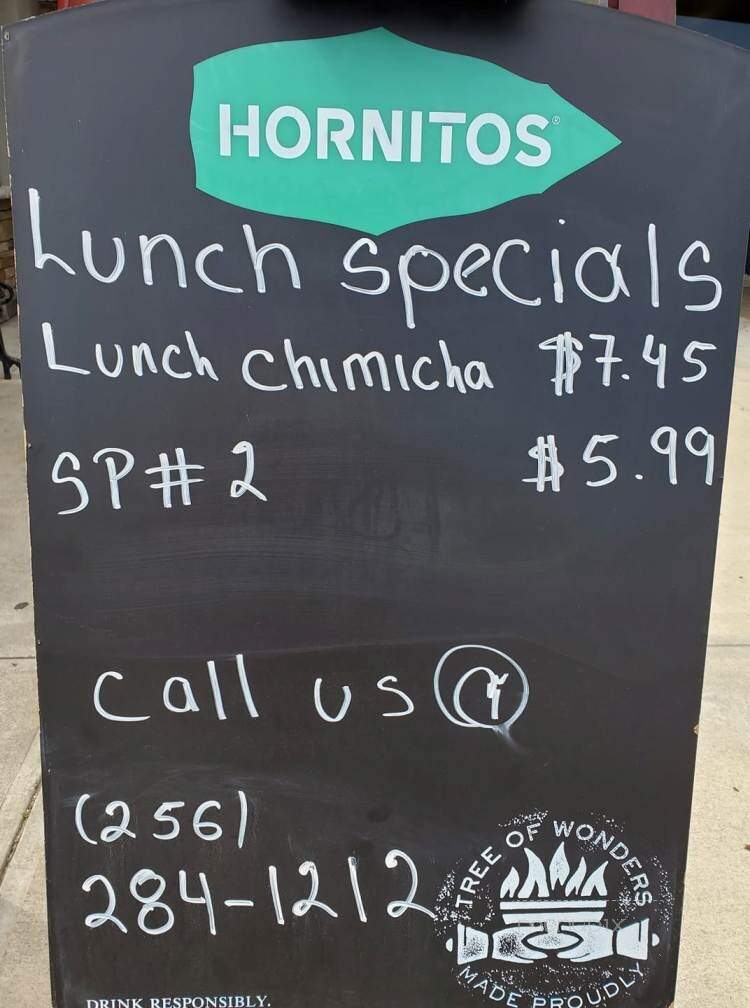 HORNITOS®
Lunch specials
Lunch chimicha $7.45
SP# 2 $5.99
call us @
(256)
284-1212
TREE OF WONDERS
MADE PROUDLY
DRINK RESPONSIBLY.